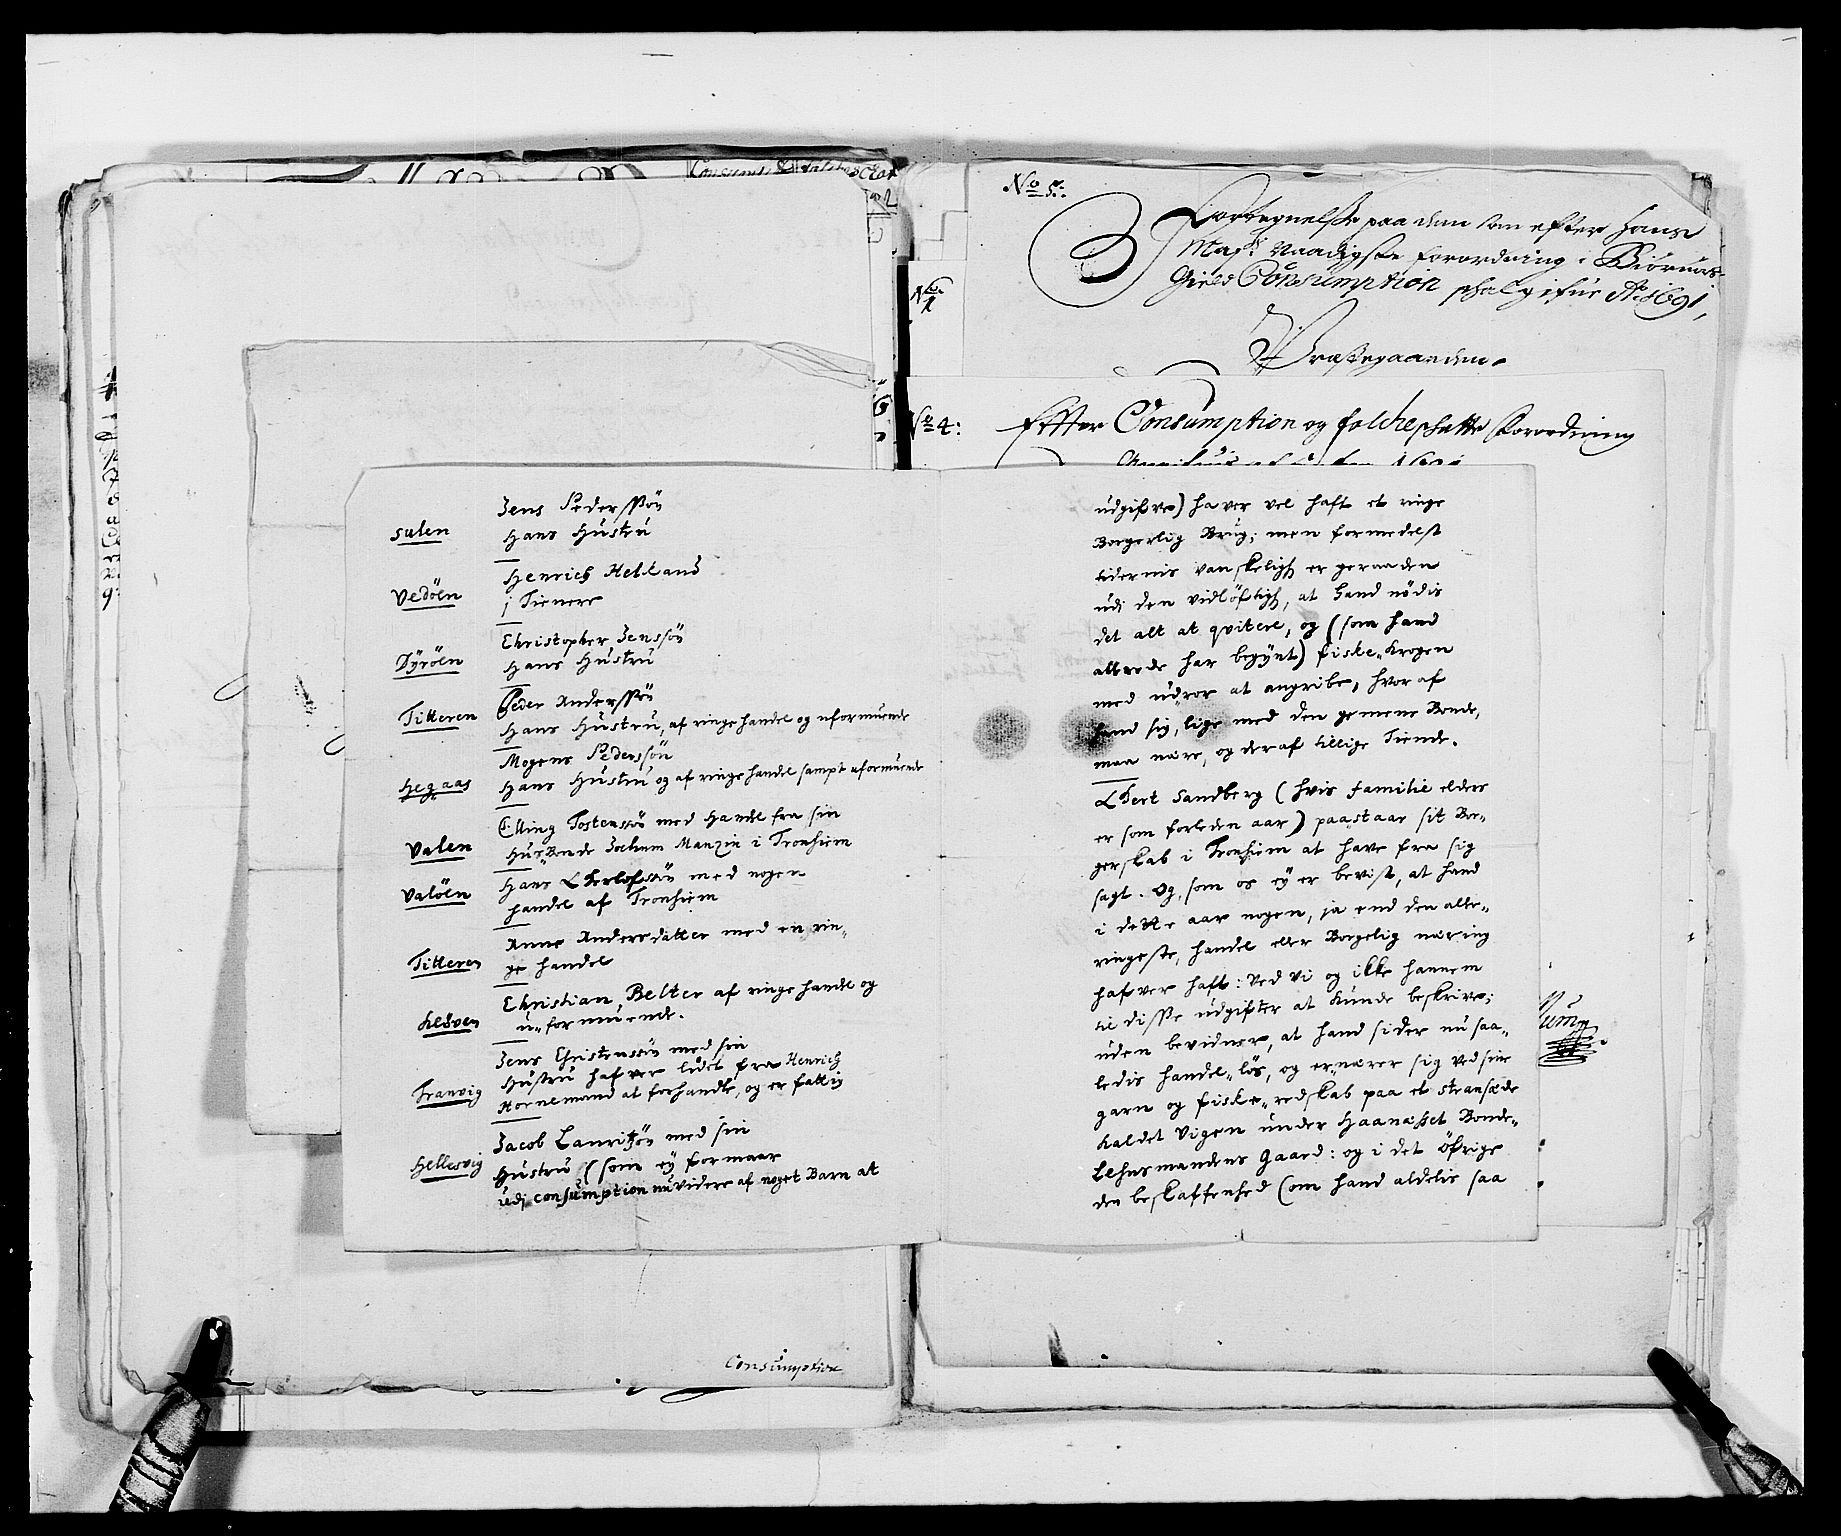 No 5:
Fortegnelsse paa den som efter hans
Mayts Naadigste forordning i Biørnørs
Gield Consumption schal gifue Ao 1691,
Præstegaarden.
No 1
No 4:
Effter Consumption og folcheschatts Forordning
sulen
Jens Pedersøn
Hans Hüstrü
Vedöen
Henrich Helkand
j Tienere
Dyröen
Christopher Jenssøn
Hans Hüstrü
Titteren
Peder Anderssøn
Hans Hüstrü, af ringe handel og uformuende
Hegaas
Mogens Pederssøn
Hans Hüstrü og af ringe handel sampt uformuende
Valen
Elling Tostenssøn med Handel fra sin
Hus-Bonde Jochum Manzin i Tronhiem
Valöen
Hans Therlofsøn med nogen
handel af Tronhiem
Titteren
Anne Andersdatter med en rin-
ge handel
Christian Belter af ringe handel og
u-formuende.
Tranvig
Jens Christenssøn med sin
Hüstrü hafver lidet fra Henrich
Hornemand at forhandle, og er fattig
Hellesvig
Jacob Lauritzøn med sin
Hüstrü (som ey formaar
udj consumption nu videre af noget Barn at
udgifve) haver vel haft et ringe
Borgerlig Brüg; men formedelst
tidernis vanskeligh er geraaden
udi den vidløftigh, at hand nødis
det alt at qvitere, og (som hand
allerede har begynt) fiske-krogen
med udror at angribe, hvoraf
hand sig, lige med den gemene Bonde,
maa nære, og deraf tillige Tiende.
Evert Sandberg (hvis familie elders
er som forleden aar) paastaar sit Bor-
gerskab i Tronhiem at have fra sig
sagt. Og, som os ey er bevist, at hand
i dette aar nogen, ja end den aller-
ringeste, handel eller Borgelig næring
hafver haft: Ved vi og ikke hannem
til disse udgifter at kunde beskrive;
uden bevidner, at hand sider nu saa-
ledis handel-løs, og ernærer sig ved sine
garn og fiske-redskab paa et stransæde
kaldet Vigen under Haanæsset Bonde-
Lehnsmandens Gaard: og i det øfrige
den beskaffenhed (om hand aldelis saa
Consumption